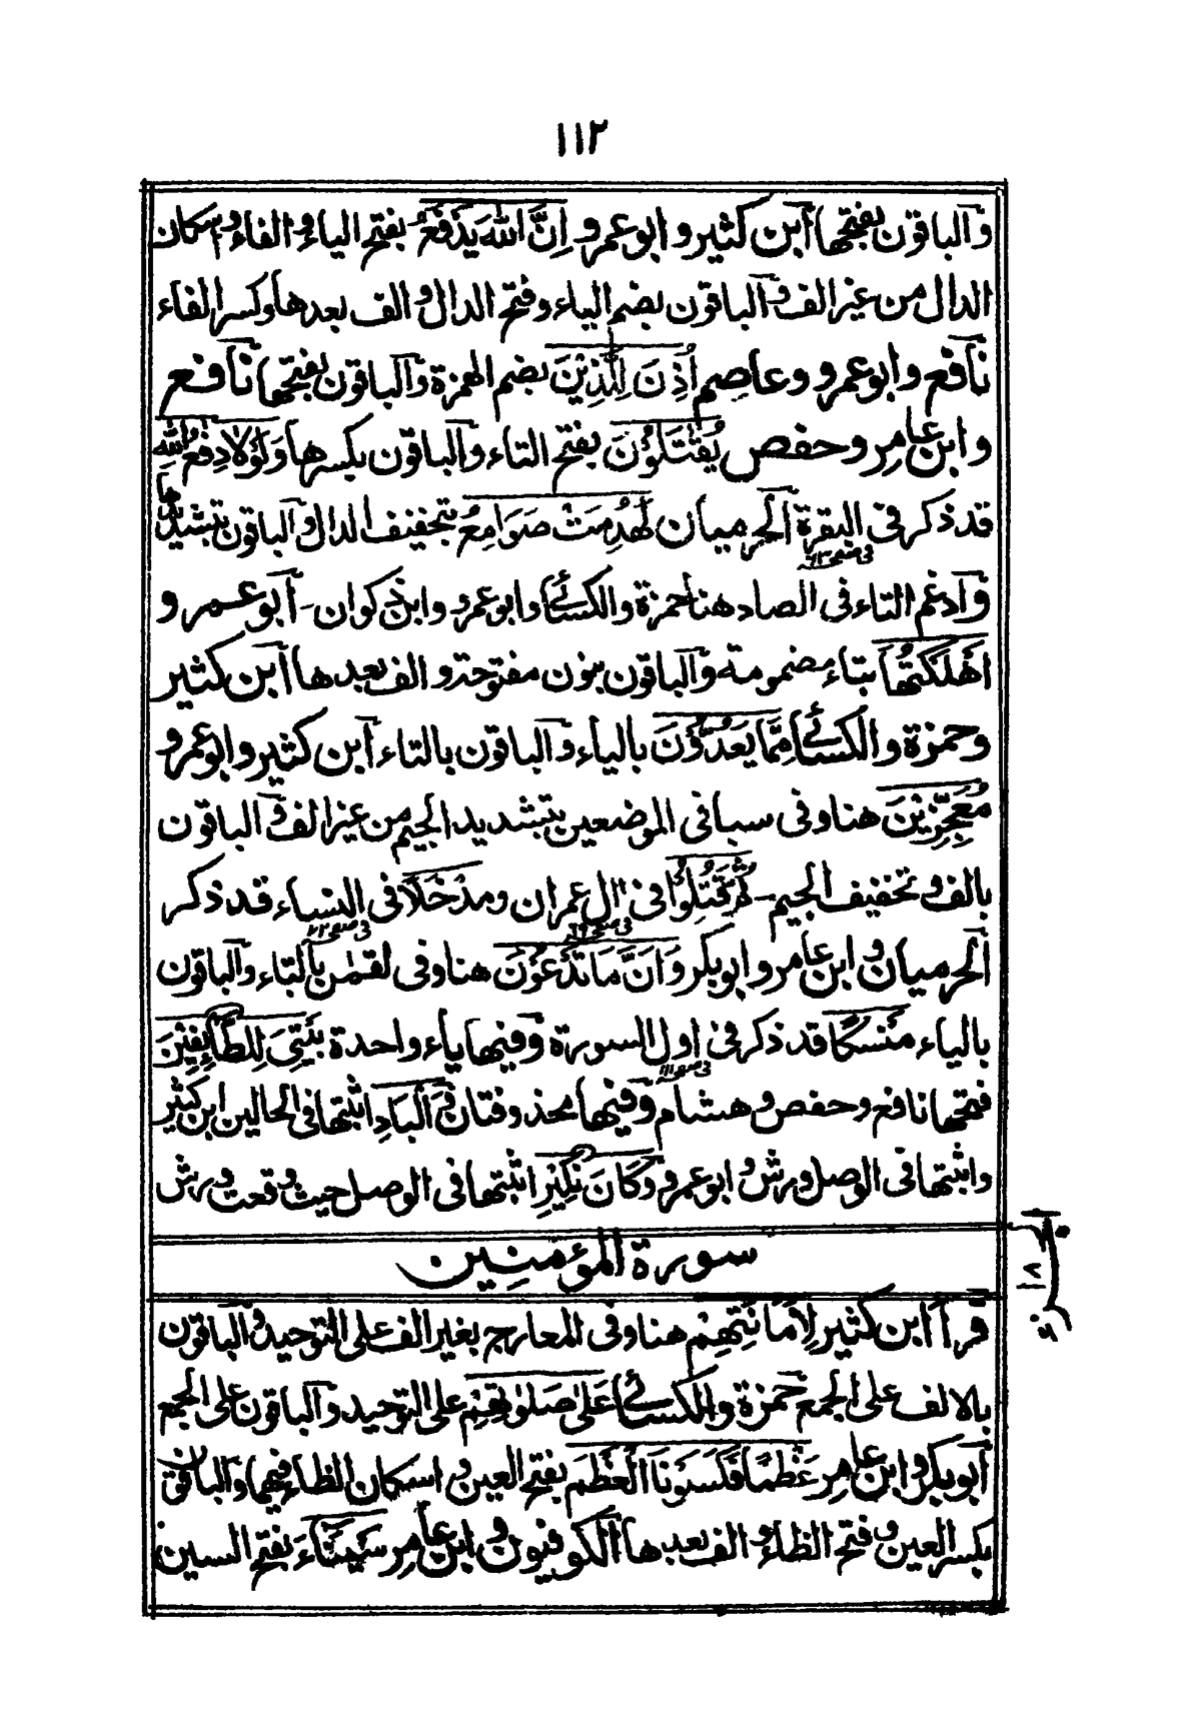 ١١٢
والباقون بفتحها ابن كثير وابو عمرو اِنَّ اللهَ يَدْفَعُ بفتح الياء والفاء واسكان
الدال من غير الف والباقون بضم الياء وفتح الدال والف بعدها وكسر الفاء
نافع وابو عمرو وعاصم اُذِنَ لِلَّذِيْنَ بضم الهمزة والباقون بفتحها نافع
وابن عامر وحفص يُقٰتَلُوْنَ بفتح التاء والباقون بكسرها وَلَوْلَا دِفٰعُ اللهِ
قد ذكر فى البقرة الحرميان لَهُدِمَتْ صَوَامِعُ بتخفيف الدال والباقون بتشديدها
فى صفحه ٦٣
وادغم التاء فى الصاد هنا حمزة والكسائى وابو عمرو وابن ذكوان - ابو عمرو
اَهْلَكْتُهَا بتاء مضمومة والباقون بنون مفتوحة والف بعدها ابن كثير
وحمزة والكسائى مِمَّا يَعُدُّوْنَ بالياء والباقون بالتاء ابن كثير وابو عمرو
مُعَجِّزِيْنَ هنا وفى سبا فى الموضعين بتشديد الجيم من غير الف والباقون
بالف وتخفيف الجيم - ثُمَّ قُتِلُوْا فى اٰل عمران ومَدْخَلًا فى النساء قد ذكر
الحرميان وابن عامر وابو بكر وَاَنَّ مَا تَدْعُوْنَ هنا وفى لقمٰن بالتاء والباقون
بالياء مَنْسَكًا قد ذكر فى اول السورة وفيها ياء واحدة بَيْتِىَ لِلطَّآئِفِيْنَ
فتحها نافع وحفص وهشام وفيها محذوفتان وَالْبَادِ اثبتها فى الحالين ابن كثير
واثبتها فى الوصل ورش وابو عمرو وَكَانَ نَكِيْرِ اثبتها فى الوصل حيث وقعت ورش
سورة المؤمنين
قرأ ابن كثير لِاَمَانَتِهِمْ هنا وفى المعارج بغير الف على التوحيد والباقون
بالالف على الجمع حمزة والكسائى عَلٰى صَلٰوتِهِمْ على التوحيد والباقون على الجمع
ابو بكر وابن عامر عَظْمًا فَكَسَوْنَا الْعَظْمَ بفتح العين واسكان الظاء فيهما والباقون
بكسر العين وفتح الظاء والف بعدها الكوفيون وابن عامر سَيْنَآءَ بفتح السين